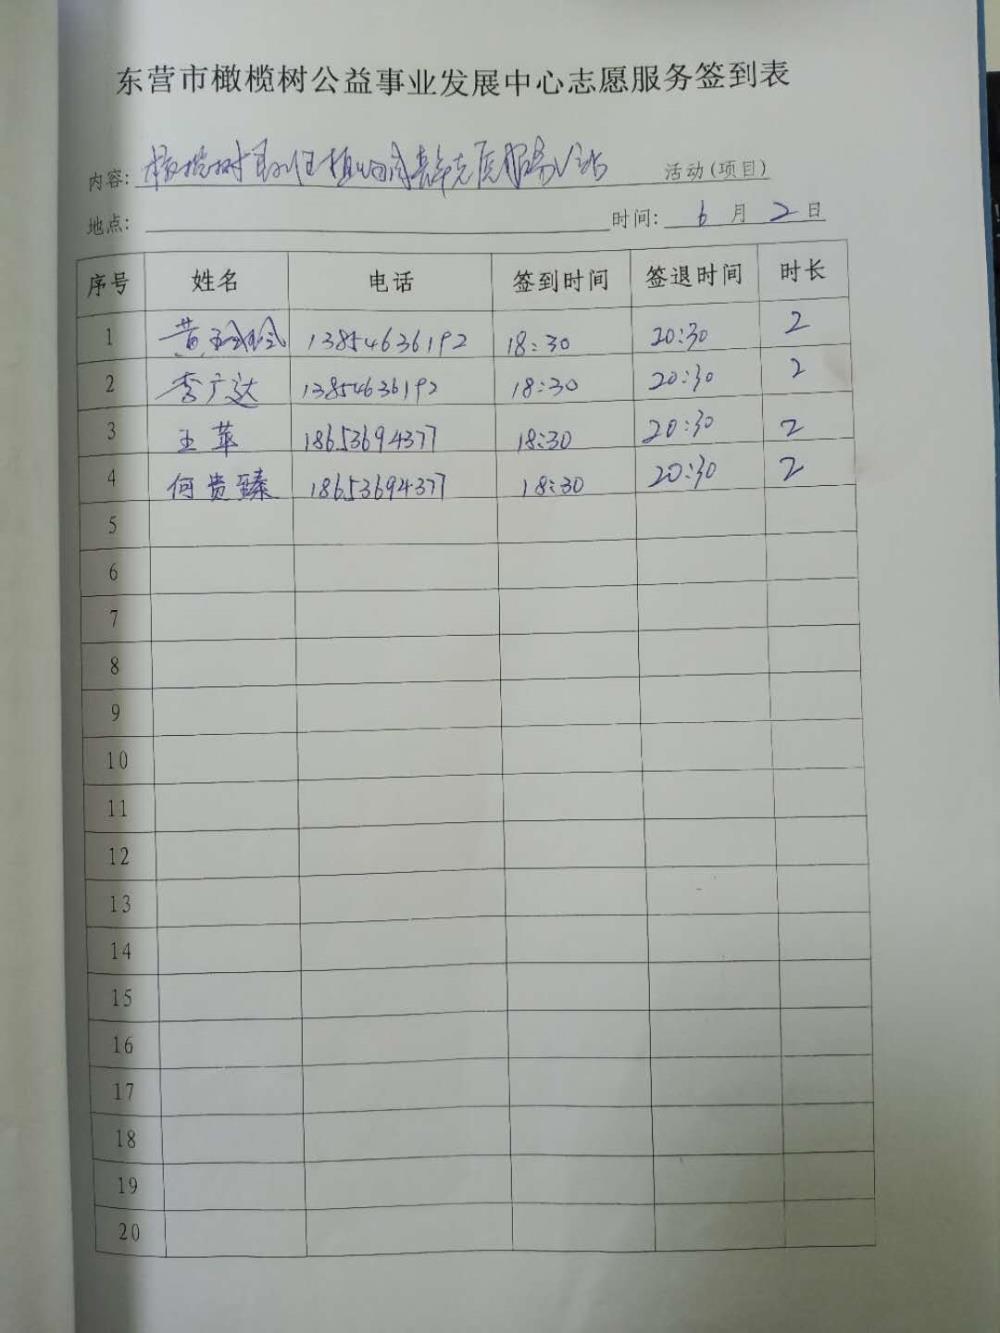 东营市橄榄树公益事业发展中心志愿服务签到表
内容: 橄榄树 服务 活动(项目)
地点: 时间: 6 月 2 日
序号 姓名 电话 签到时间 签退时间 时长
1 黄 13854636192 18:30 20:30 2
2 李广达 13854636192 18:30 20:30 2
3 王苹 18653694377 18:30 20:30 2
4 何贵臻 18653694377 18:30 20:30 2
5
6
7
8
9
10
11
12
13
14
15
16
17
18
19
20